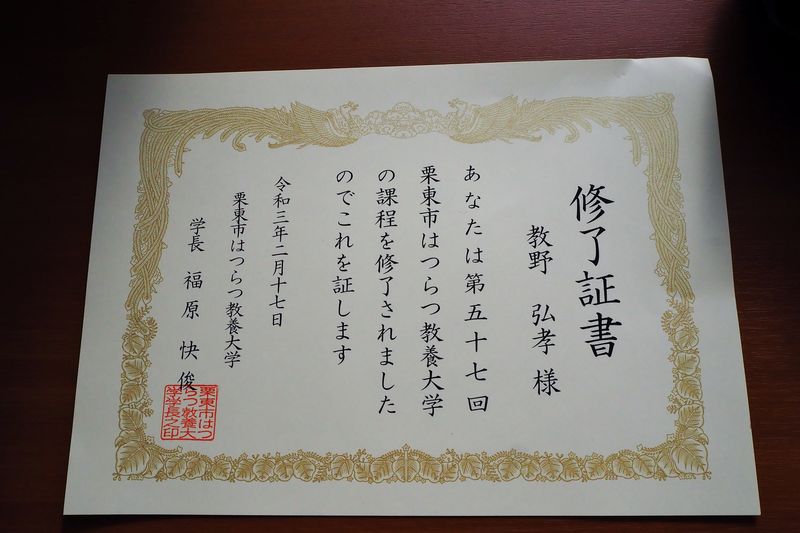 修了証書
教野 弘孝 様
あなたは第五十七回
栗東市はつらつ教養大学
の課程を修了されました
のでこれを証します
令和三年二月十七日
栗東市はつらつ教養大学
学長 福原 快俊
栗東市はつ
らつ教養大
学学長之印